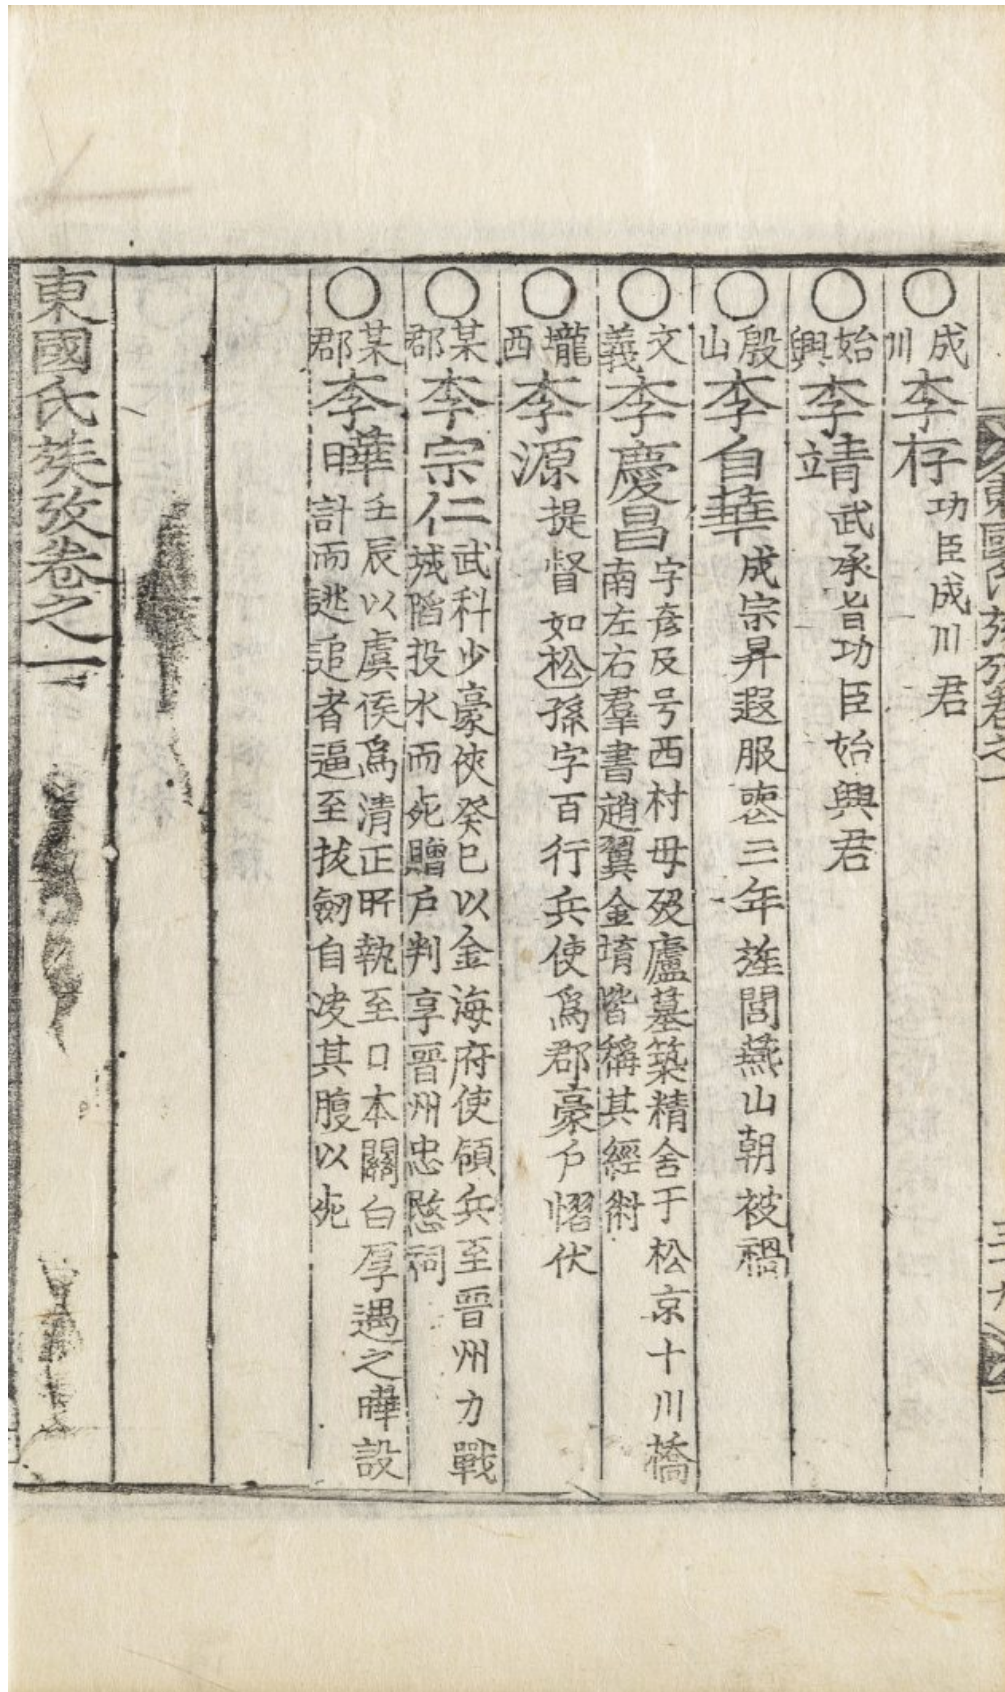 東國氏族攷卷之一
○成川李存功臣成川君
○始興李靖武承旨功臣始興君
○殷山李自華成宗昇遐服喪三年旌閭燕山朝被禍
○文義李慶昌字彦及号西村母歿廬墓築精舍于松京十川橋
南左右羣書趙翼金堉皆稱其經術
○壠西李源提督如松孫字百行兵使爲郡豪戶慴伏
○某郡李宗仁武科少豪俠癸巳以金海府使領兵至晋州力戰
城陷投水而死贈戶判享晋州忠愍祠
○某郡李曄壬辰以虞侯爲清正所執至日本關白厚遇之曄設
計而逃追者逼至拔劒自决其腹以死
東國氏族攷卷之一